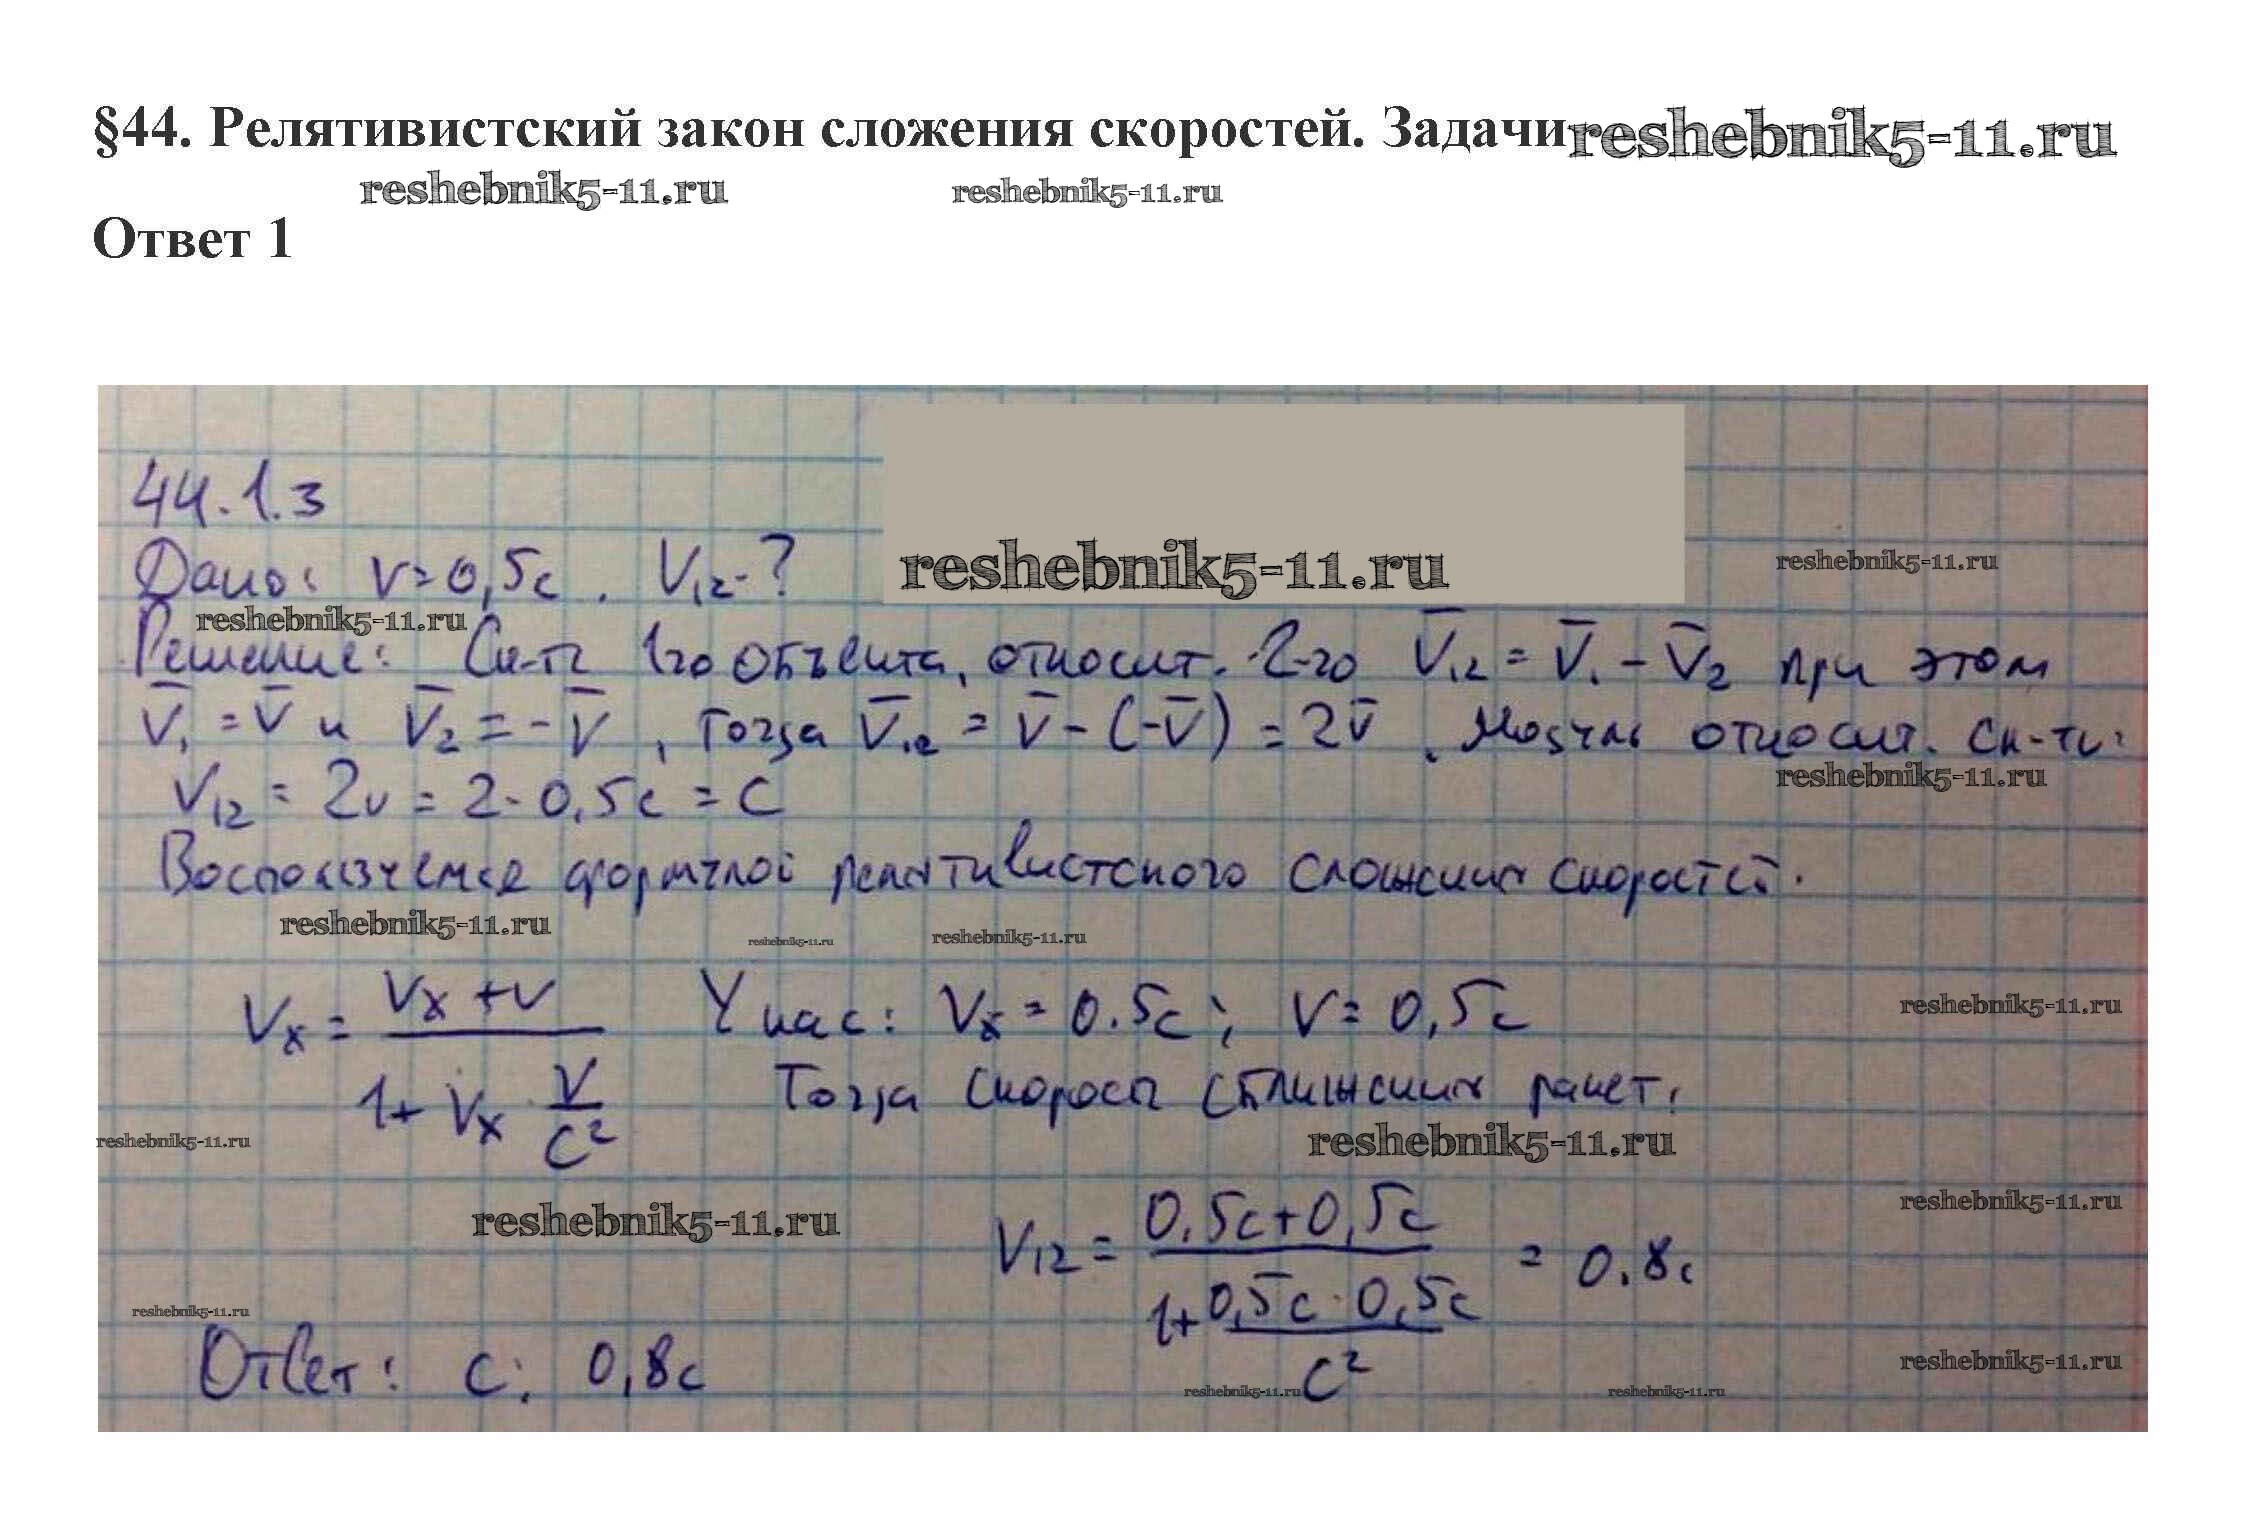 §44. Релятивистский закон сложения скоростей. Задачи reshebnik5-11.ru
reshebnik5-11.ru reshebnik5-11.ru
Ответ 1
44.1.3
reshebnik5-11.ru reshebnik5-11.ru
Дано: V=0,5c. V₁₂-?
reshebnik5-11.ru
Решение: Ск-ть 1го объекта, относит. 2-го V̅₁₂ = V̅₁ - V̅₂ при этом
V̅₁ = V̅ и V̅₂ = -V̅, тогда V̅₁₂ = V̅ - (-V̅) = 2V̅. Модуль относит. ск-ти:
reshebnik5-11.ru
V₁₂ = 2v = 2·0,5c = c
Воспользуемся формулой релятивистского сложения скоростей.
reshebnik5-11.ru reshebnik5-11.ru reshebnik5-11.ru
Vₓ = (Vₓ + v) / (1 + Vₓ · V/c²) У нас: Vₓ = 0.5c; V = 0,5c
reshebnik5-11.ru
Тогда скорость сближения ракет:
reshebnik5-11.ru reshebnik5-11.ru
reshebnik5-11.ru reshebnik5-11.ru
V₁₂ = (0,5c+0,5c) / (1+ 0,5c·0,5c / c²) = 0.8c
reshebnik5-11.ru
Ответ: c; 0,8c
reshebnik5-11.ru
reshebnik5-11.ru reshebnik5-11.ru